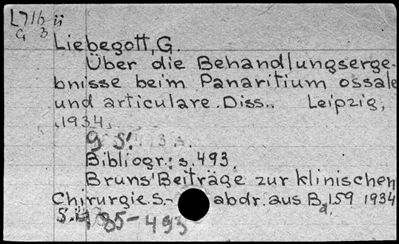 L716 ü
G 3
Liebegott, G.
Über die Behandlungserge-
bnisse beim Panaritium ossale
und articulare. Diss., Leipzig,
1934,
9 S.
Bibliogr.: s. 493,
Bruns' Beiträge zur klinischen
Chirurgie. S.- abdr. aus Bd. 159 1934
S. 485-493